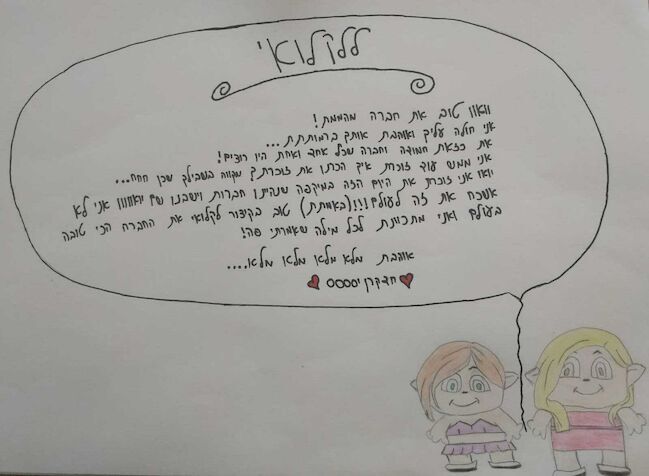 ללקלואי
וואוו טוב את חברה מהממת!
אני חולה עליך ואוהבת אותך ברמותתת...
את כזאת חמודה וחברה שכל אחד ואחת היו רוצים!
אני ממש עוד זוכרת איך הכרנו את זוכרת? מקווה בשבילך שכן חחח...
יואו אני זוכרת את היום הזה במיקפה שנהינו חברות וישבנו שם יואווווו אני לא
אשכח את זה לעולם!!!(באמתת) טוב בקיצור לקלואי את החברה הכי טובה
בעולם ואני מתכוונת לכל מילה שאמרתי פה!
אוהבת מלא מלאו מלאו מלאו....
יססססס